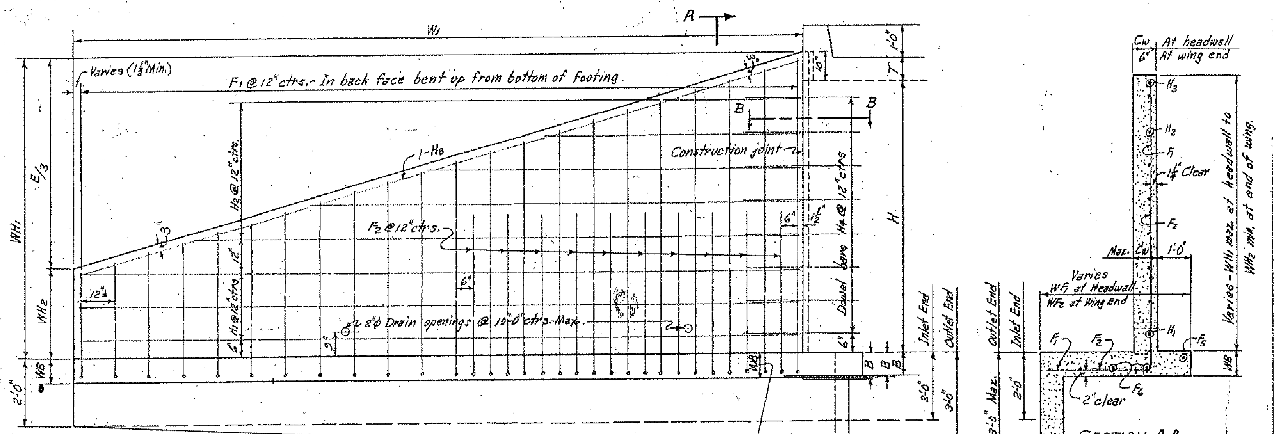 A
W₁
1'-0"
Varies (1½" Min.)
F₁ @ 12" ctrs. - In back face bent up from bottom of footing.
10"
T
B B
Construction joint
1-H₃
E/3
WH₁
H₂ @ 12" ctrs.
12"
H₁ @ 12" ctrs.
6"
F₂ @ 12" ctrs.
6"
6"
Dowel bars H₄ @ 12" ctrs
6"
H
3"
12"
WH₂
WB
2'-0"
8"φ Drain openings @ 10'-0" ctrs. Max.
9"
WB
B B B
Inlet End
Outlet End
3'-0"
3'-0"
Cw At headwall
6" At wing end
H₃
H₂
F₁
1½" Clear
F₂
Max. Cw 1'-0"
Varies
WF₁ at Headwall
WF₂ at Wing End
Varies - WH₁ max. at headwall to
WH₂ min. at end of wing.
H₁
F₁ F₂ F₅
F₆
2" clear
WB
Outlet End
Inlet End
3'-0" Max.
2'-0"